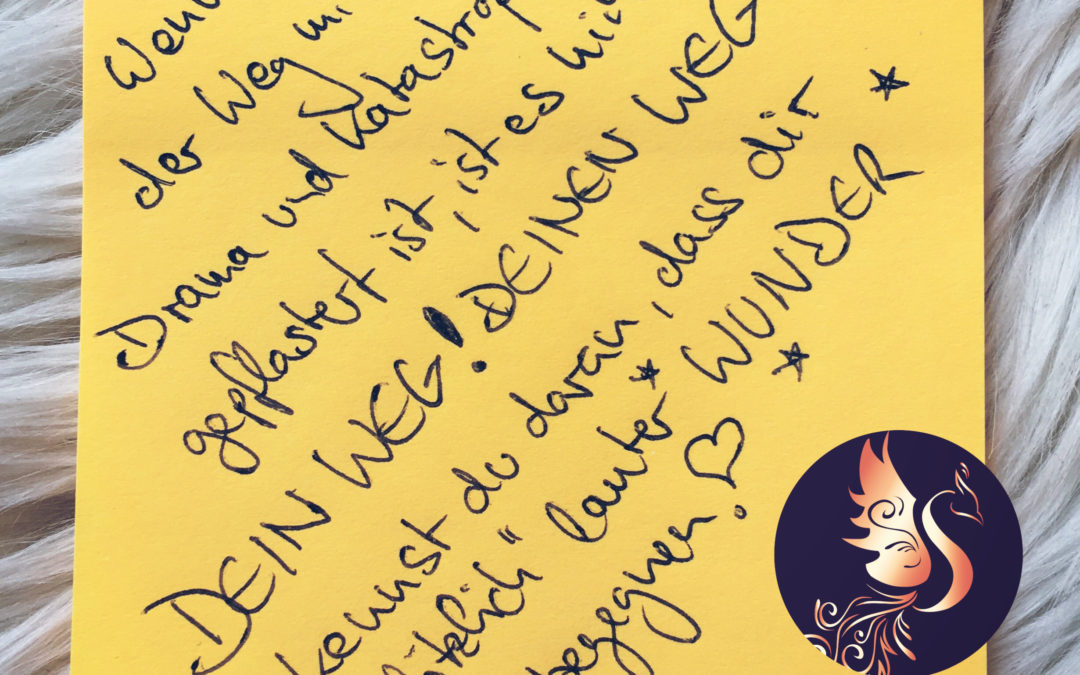 Wenn
der Weg mi
Drama und Katastrop
gepflastert ist, ist es nich
DEIN WEG! DEINEN WEG
kennst du daran, dass dir
ötzlich" lauter WUNDER
begegnen!